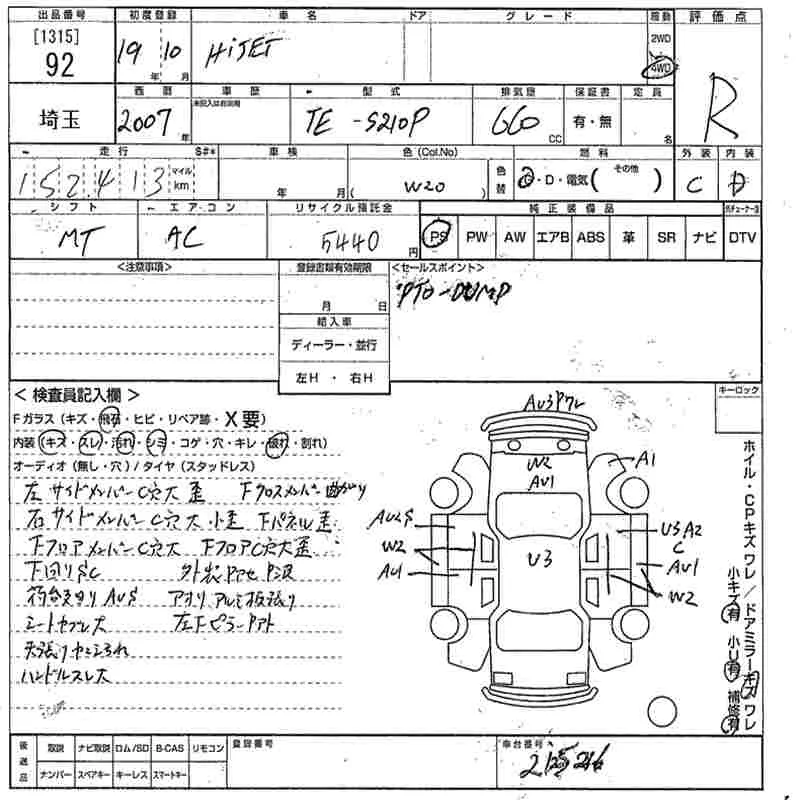 出品番号 初度登録 車名 ドア グレード 駆動 評価点
[1315] 92 19年 10月 HiJET 2WD 4WD R
埼玉 西暦 車歴 型式 排気量 保証書 定員
2007年 未記入は自家用 TE -S210P 660 CC 有・無 名
走行 S#* 車検 色(Col.No) 色替 燃料 外装 内装
152413 マイル km 年 月 (W20) G・D・電気(その他) C D
シフト エアコン リサイクル預託金 純正装備品
MT AC 5440円 PS PW AW エアB ABS 革 SR ナビ DTV
<注意事項> 登録書類有効期限 <セールスポイント>
月 日 PTO-DUMP
輸入車
ディーラー・並行
左H ・ 右H
<検査員記入欄> キーロック
Fガラス(キズ・飛石・ヒビ・リペア跡・X要)
内装(キズ・スレ・汚れ・シミ・コゲ・穴・キレ・破れ・割れ)
オーディオ(無し・穴)/タイヤ(スタッドレス)
左サイドメンバーC穴大 歪 Fクロスメンバー曲がり
右サイドメンバーC穴大 小歪 Fパネル歪
FフロアメンバーC穴大 FフロアC穴大歪
下回りSC
アオリアルミ板張り
シートヤブレ大
ハンドルスレ大
AU3ワレ
W2
AU1
A1
AU2S
W2
AU1
U3
U3 A2
C
AU1
W2
ホイル・CPキズ ワレ/ドアミラーキズ ワレ
小キズ有 小U有 補修有
後送品 取説 ナビ取説 ロム/SD B-CAS リモコン 登録番号 車台番号
ナンバー スペアキー キーレス スマートキー